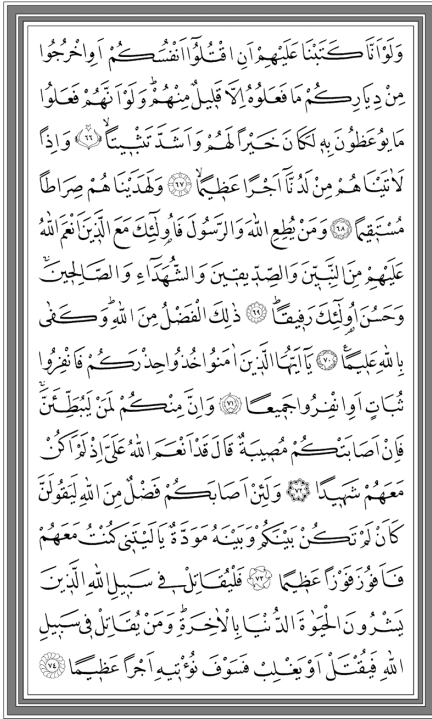 وَلَوْ اَنَّا كَتَبْنَا عَلَيْهِمْ اَنِ اقْتُلُٓوا اَنْفُسَكُمْ اَوِ اخْرُجُوا
مِنْ دِيَارِكُمْ مَا فَعَلُوهُ اِلَّا قَلِيلٌ مِنْهُمْۜ وَلَوْ اَنَّهُمْ فَعَلُوا
مَا يُوعَظُونَ بِهِ لَكَانَ خَيْرًا لَهُمْ وَاَشَدَّ تَثْبِيتًاۙ ﴿٦٦﴾ وَاِذًا
لَاٰتَيْنَاهُمْ مِنْ لَدُنَّٓا اَجْرًا عَظِيمًاۙ ﴿٦٧﴾ وَلَهَدَيْنَاهُمْ صِرَاطًا
مُسْتَقِيمًا ﴿٦٨﴾ وَمَنْ يُطِعِ اللّٰهَ وَالرَّسُولَ فَاُو۬لٰٓئِكَ مَعَ الَّذِينَ اَنْعَمَ اللّٰهُ
عَلَيْهِمْ مِنَ النَّبِيّٖنَ وَالصِّدّٖيقِينَ وَالشُّهَدَٓاءِ وَالصَّالِحِينَۚ
وَحَسُنَ اُو۬لٰٓئِكَ رَفِيقًاۜ ﴿٦٩﴾ ذٰلِكَ الْفَضْلُ مِنَ اللّٰهِۜ وَكَفٰى
بِاللّٰهِ عَلِيمًا۟ ﴿٧٠﴾ يَٓا اَيُّهَا الَّذِينَ اٰمَنُوا خُذُوا حِذْرَكُمْ فَانْفِرُوا
ثُبَاتٍ اَوِ انْفِرُوا جَمِيعًا ﴿٧١﴾ وَاِنَّ مِنْكُمْ لَمَنْ لَيُبَطِّئَنَّۚ
فَاِنْ اَصَابَتْكُمْ مُصِيبَةٌ قَالَ قَدْ اَنْعَمَ اللّٰهُ عَلَيَّ اِذْ لَمْ اَكُنْ
مَعَهُمْ شَهِيدًا ﴿٧٢﴾ وَلَئِنْ اَصَابَكُمْ فَضْلٌ مِنَ اللّٰهِ لَيَقُولَنَّ
كَاَنْ لَمْ تَكُنْ بَيْنَكُمْ وَبَيْنَهُ مَوَدَّةٌ يَا لَيْتَنِي كُنْتُ مَعَهُمْ
فَاَفُوزَ فَوْزًا عَظِيمًا ﴿٧٣﴾ فَلْيُقَاتِلْ فِي سَبِيلِ اللّٰهِ الَّذِينَ
يَشْرُونَ الْحَيٰوةَ الدُّنْيَا بِالْاٰخِرَةِۜ وَمَنْ يُقَاتِلْ فِي سَبِيلِ
اللّٰهِ فَيُقْتَلْ اَوْ يَغْلِبْ فَسَوْفَ نُؤْتِيهِ اَجْرًا عَظِيمًا ﴿٧٤﴾